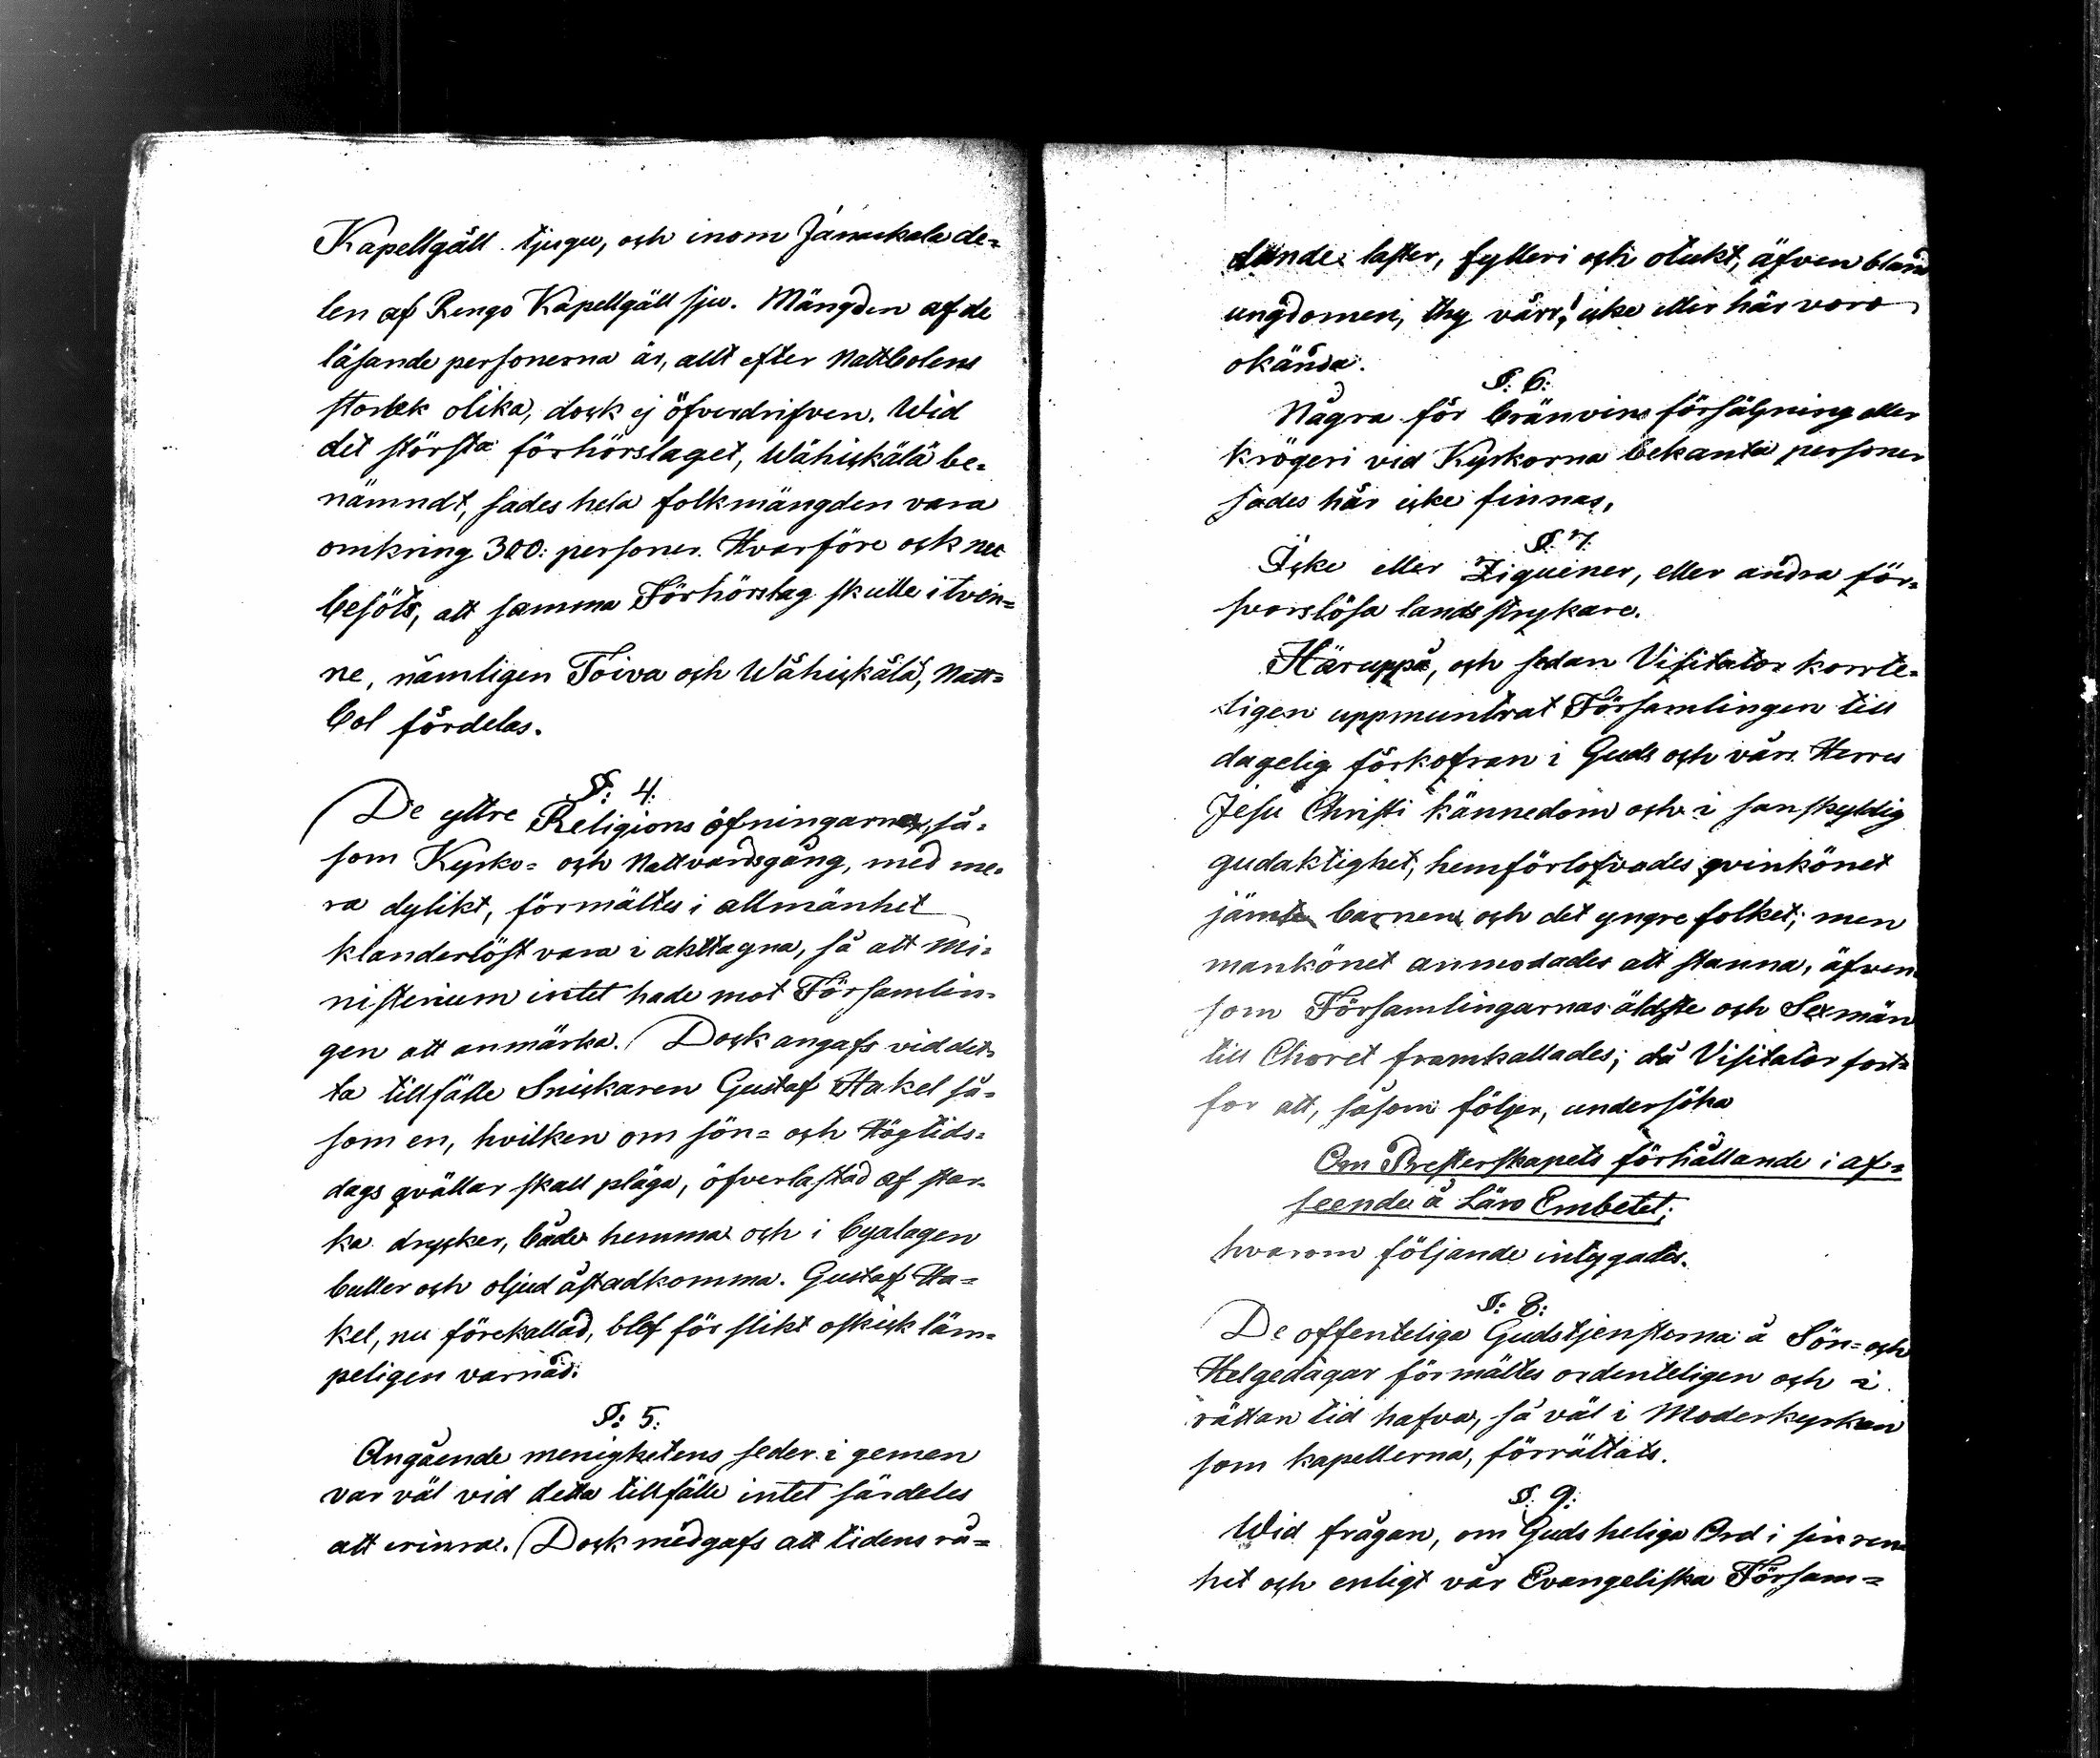 Kapellgäll tjugu, och inom Janackala de=
len af Rengo Kapellgäll sju. Mängden af de
läsande personerna är, allt efter Nattbolens
storlek olika, dock ej öfverdrifven. Wid
det största förhörslaget, Wähickälä be=
nämndt, sades hela folkmängden vara
omkring 300: personer. Hvarföre ock nu
besöts, att samma Förhörslag skulle i tvän=
ne, nämligen Toiva och Wähickälä, Natt=
bol fördelas.
§: 4:
De yttre Religions öfningarna, så=
som Kyrko= och Nattvardsgång, med me=
ra dylikt, förmältes i allmänhet
klanderlöst vara i akttagna, så att Mi=
nisterium intet hade mot Församlin=
gen att anmärka. Dock angafs vid det=
ta tillfälle Snickaren Gustaf Hakel så=
som en, hvilken om sön= och Högtids=
dags qvällar skall pläga, öfverlastad af star=
ka drycker, både hemma och i byalagen
buller och oljud åstadkomma. Gustaf Ha=
kel, nu förekallad, blef för slikt oskick läm=
peligen varnad.
§: 5:
Angående menighetens seder i gemen
var väl vid detta tillfälle intet särdeles
att erinra. Dock medgafs att tidens rå=
dande laster, fylleri och otukt, äfven bland
ungdomen, thy värr! icke eller här voro
okända.
§: 6:
Några för bränvins försäljning eller
krögeri vid Kyrkorna bekanta personer
sades här icke finnas.
§: 7:
Icke eller Ziguener, eller andra för=
svarslösa landsstrykare.
Häruppå, och sedan Visitator korrte=
ligen uppmuntrat Församlingen till
dagelig förkofran i Guds och vårs Herres
Jesu Christi kännedom och i sanskyldig
gudaktighet, hemförlofvades qvinkönet
jämte barnen och det yngre folket; men
mankönet anmodades att stanna, äfven
som Församlingarnas äldste och Sexmän
till Choret framkallades; då Visitator fort=
for att, såsom följer, undersöka
Om Presterskapets förhållande i af=
seende å Läro Embetet;
hvarom följande intygades.
§: 8:
De offenteliga Gudstjensterna å Sön= och
Helgedagar förmältes ordenteligen och i
rättan tid hafva, så väl i Moderkyrkan
som kapellerna, förrättats.
§: 9:
Wid frågan, om Guds heliga Ord i sin ren=
het och enligt vår Evangeliska Försam=